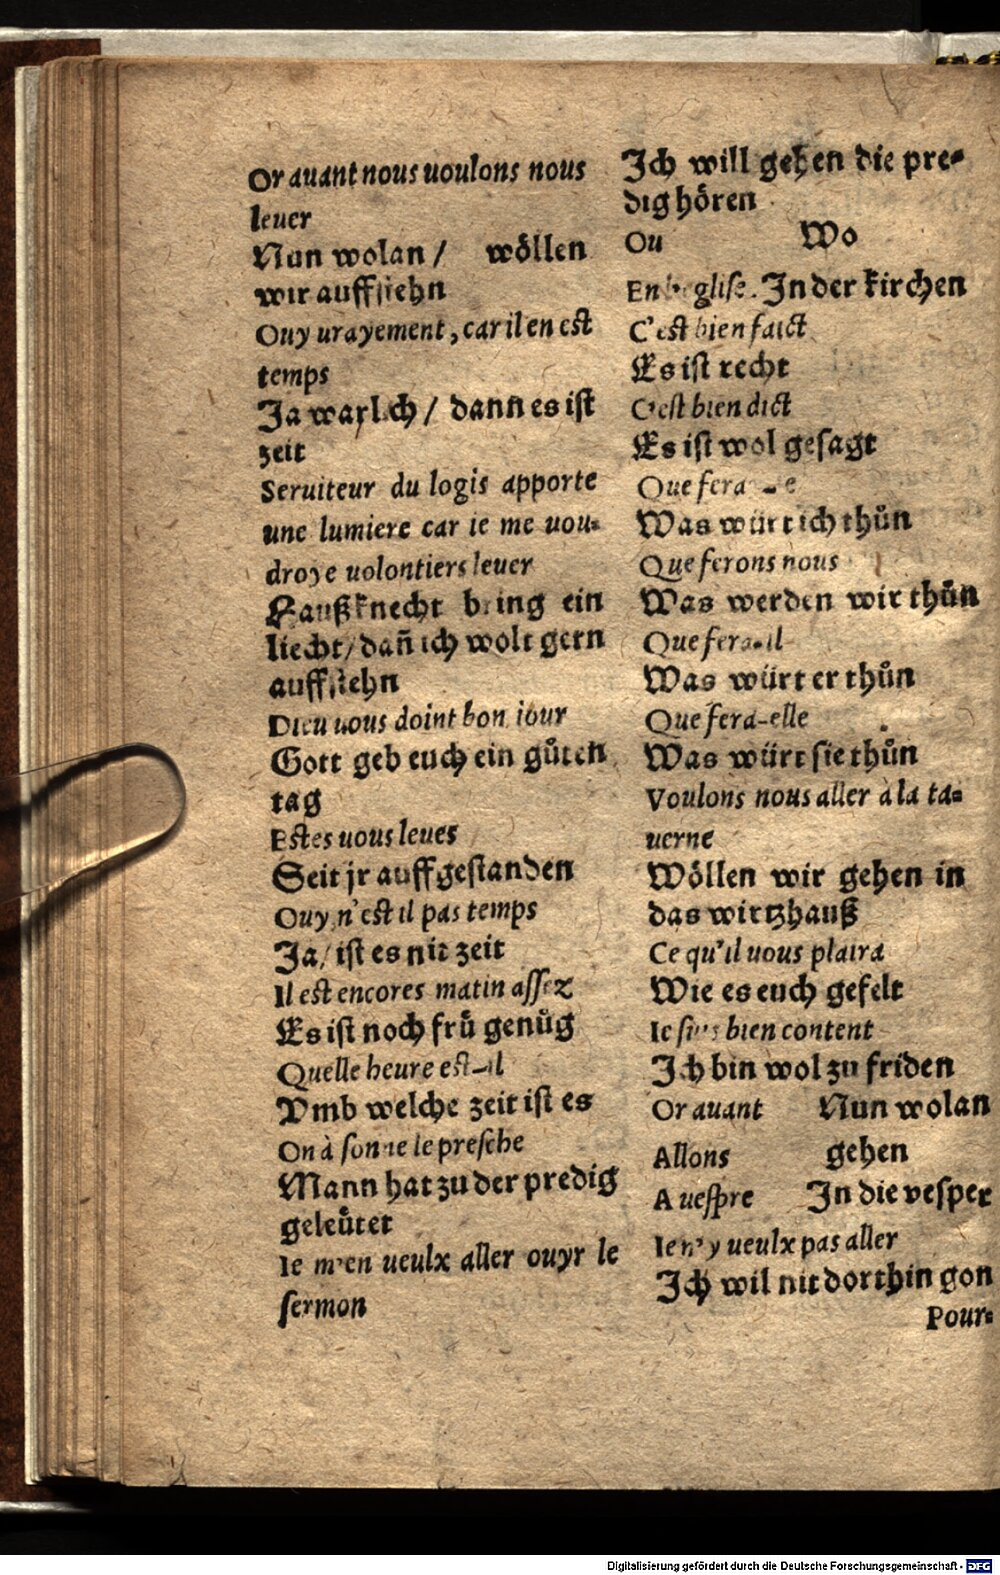 Or auant nous uoulons nous
leuer
Nun wolan / wöllen
wir auffstehn
Ouy urayement, car il en est
temps
Ja warlich / dann es ist
zeit
Seruiteur du logis apporte
une lumiere car ie me uou⸗
droye uolontiers leuer
Haußknecht bring ein
liecht/ dañ ich wolt gern
auffstehn
Dieu uous doint bon iour
Gott geb euch ein gůten
tag
Estes uous leues
Seit jr auffgestanden
Ouy, n'est il pas temps
Ja/ ist es nit zeit
Il est encores matin assez
Es ist noch frů genůg
Quelle heure est-il
Vmb welche zeit ist es
On à sonne le presche
Mann hat zu der predig
geleütet
Ie m'en ueulx aller ouyr le
sermon
Ich will gehen die pre⸗
dig hören
Ou Wo
En l'eglise. In der kirchen
C'est bien faict
Es ist recht
C'est bien dict
Es ist wol gesagt
Que fera-e
Was würt ich thůn
Que ferons nous
Was werden wir thůn
Que fera-il
Was würt er thůn
Que fera-elle
Was würt sie thůn
Voulons nous aller à la ta⸗
uerne
Wöllen wir gehen in
das wirtzhauß
Ce qu'il uous plaira
Wie es euch gefelt
Ie suis bien content
Ich bin wol zu friden
Or auant Nun wolan
Allons gehen
A uespre In die vesper
Ie n'y ueulx pas aller
Ich wil nit dorthin gon
Pour⸗
Digitalisierung gefördert durch die Deutsche Forschungsgemeinschaft - DFG